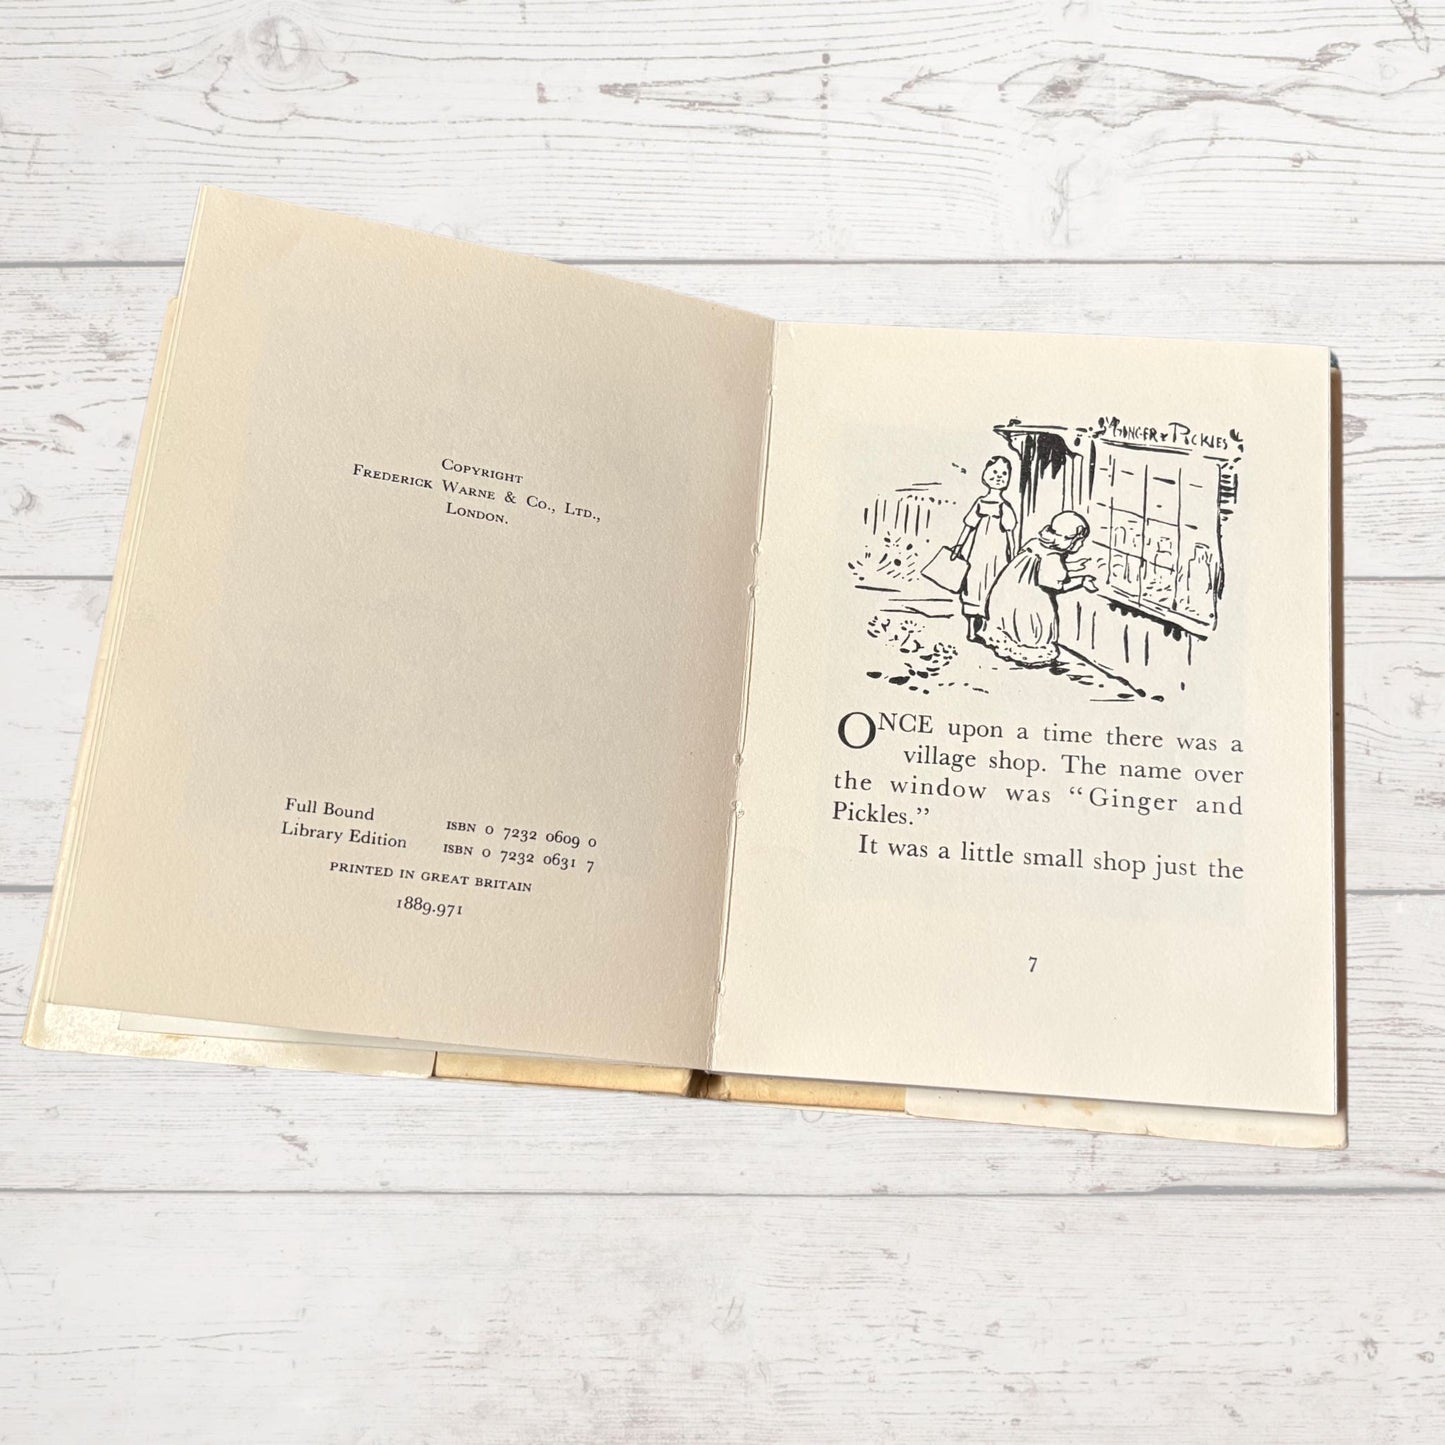 COPYRIGHT
FREDERICK WARNE & CO., LTD.,
LONDON.
Full Bound ISBN 0 7232 0609 0
Library Edition ISBN 0 7232 0631 7
PRINTED IN GREAT BRITAIN
1889.971
GINGER & PICKLES
ONCE upon a time there was a
village shop. The name over
the window was “Ginger and
Pickles.”
It was a little small shop just the
7